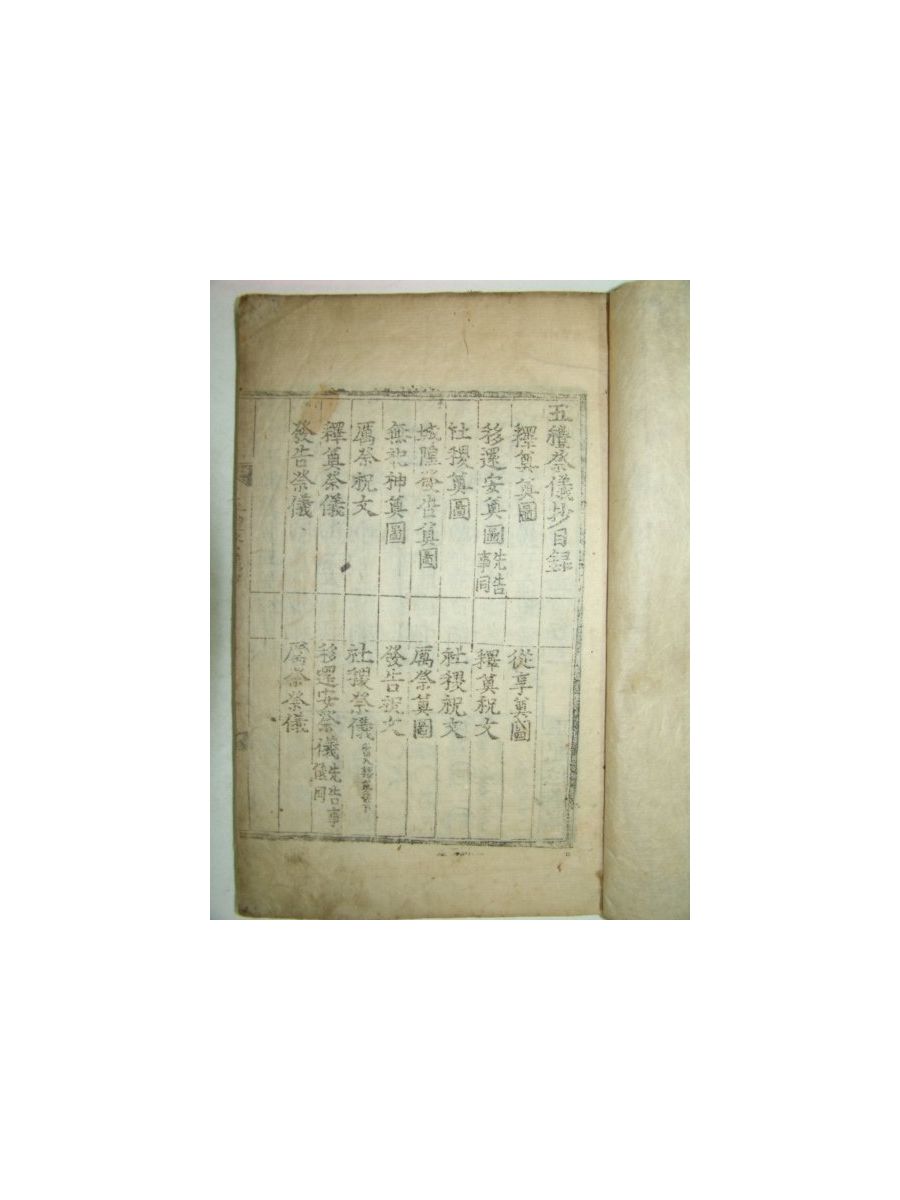 五禮祭儀抄目録
釋奠奠圖
從享奠圖
移還安奠圖先告事同
釋奠祝文
社稷奠圖
社稷祝文
城隍發告奠圖
厲祭奠圖
無祀神奠圖
發告祝文
厲祭祝文
社稷祭儀
釋奠祭儀
移還安祭儀先告事儀同
發告祭儀
厲祭祭儀